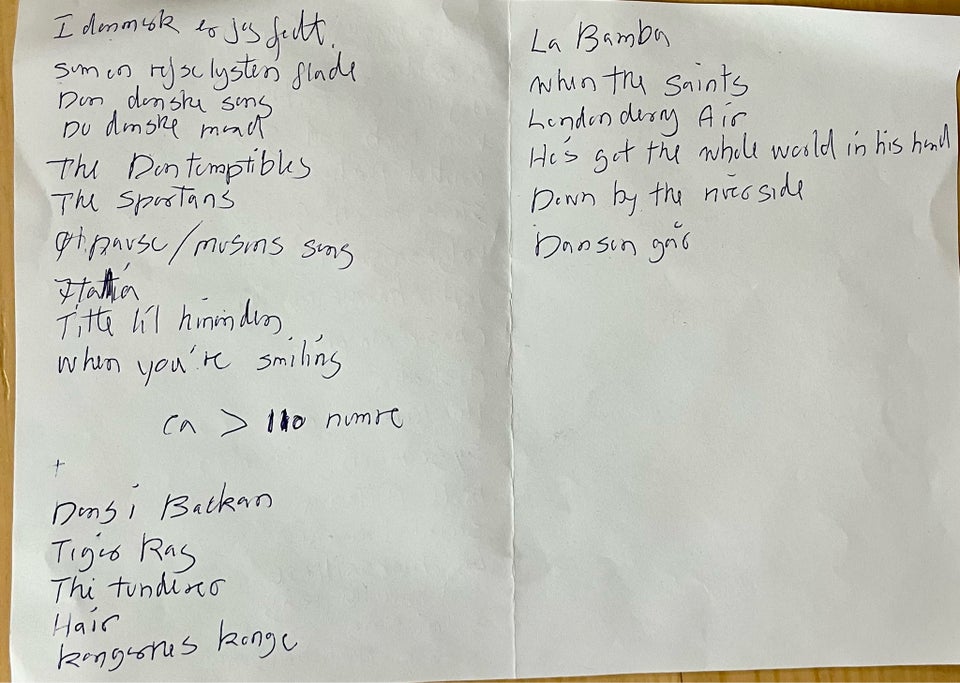 I danmark er jeg født.
som en rejselysten flåde
Den danske sang
Du danske mand
The Contemptibles
The Spartans
Øl pause / musens sang
Italia
Titte til hinanden
When you're smiling
ca > 110 numre
+
Dans i Backan
Tiger Rag
The tunderer
Hair
kongernes konge
La Bamba
When the Saints
Londonderry Air
He's got the whole world in his hand
Down by the riverside
Dansen går